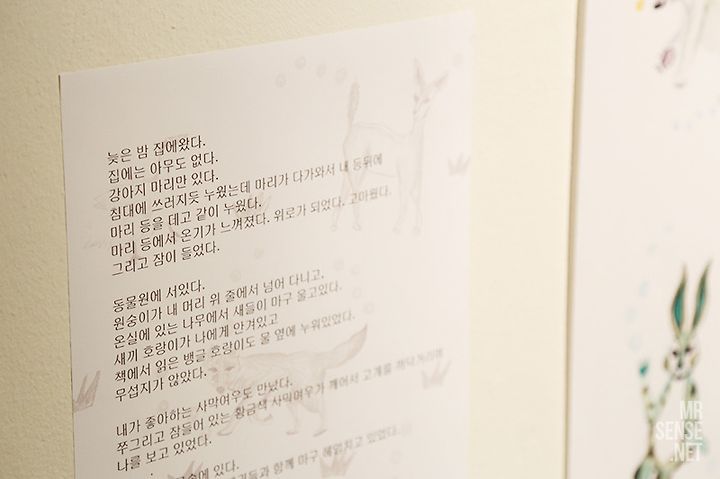 늦은 밤 집에왔다.
집에는 아무도 없다.
강아지 마리만 있다.
침대에 쓰러지듯 누웠는데 마리가 다가와서 내 등뒤에
마리 등을 데고 같이 누웠다.
마리 등에서 온기가 느껴졌다. 위로가 되었다. 고마웠다.
그리고 잠이 들었다.
동물원에 서있다.
원숭이가 내 머리 위 줄에서 넘어 다니고,
온실에 있는 나무에서 새들이 마구 울고있다.
새끼 호랑이가 나에게 안겨있고
책에서 읽은 뱅글 호랑이도 물 옆에 누워있었다.
무섭지가 않았다.
내가 좋아하는 사막여우도 만났다.
쭈그리고 잠들어 있는 황금색 사막여우가 깨어서 고개를
나를 보고 있었다.
있다.
함께 마구 헤엄치고 있었다.
MR
SENSE
.NET